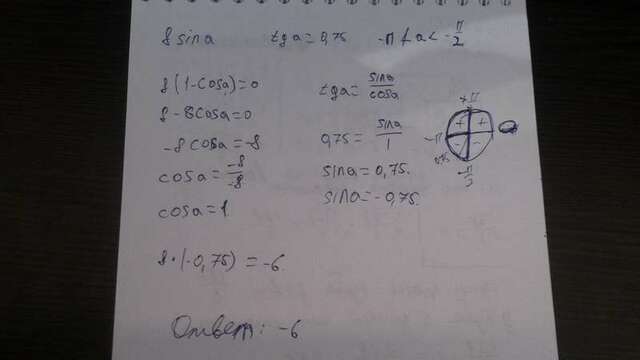 8 sina tga = 0,75 -π < a < -π/2
8(1-cosa)=0
8-8cosa=0
-8cosa=-8
cosa = -8/-8
cosa = 1
tga = sina/cosa
0,75 = sina/1
sina = 0,75.
sina = -0,75.
+π
+ +
-π
- -
-π/2
8·(-0,75) = -6.
Ответ: -6